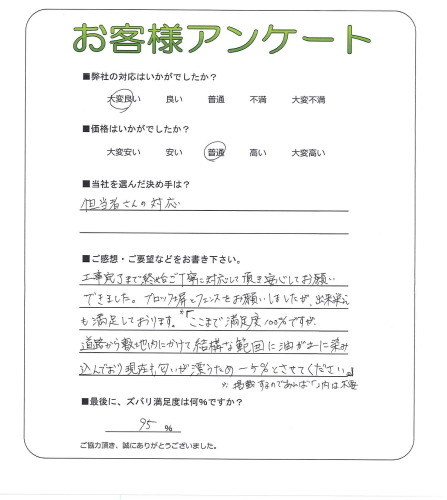 お客様アンケート
■弊社の対応はいかがでしたか?
大変良い 良い 普通 不満 大変不満
■価格はいかがでしたか?
大変安い 安い 普通 高い 大変高い
■当社を選んだ決め手は?
担当者さんの対応
■ご感想・ご要望などをお書き下さい。
工事完了まで終始ご丁寧に対応して頂き安心してお願い
できました。ブロック塀とフェンスをお願いしましたが、出来栄え
も満足しております。※「ここまで満足度100%ですが、
道路から敷地内にかけて結構な範囲に油がおに染み
込んでおり現在も匂いが漂うため-5%とさせてください。」
※掲載するのであれば「」内は不要
■最後に、ズバリ満足度は何%ですか?
95 %
ご協力頂き、誠にありがとうございました。